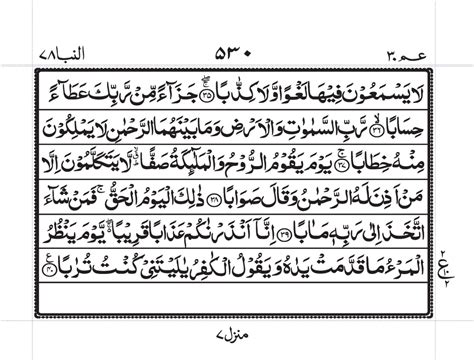 عم ٣٠ ٥٣٠ النبا ٧٨
لَا يَسْمَعُوْنَ فِيْهَا لَغْوًا وَّلَا كِذّٰبًا ﴿٣٥﴾ جَزَآءً مِّنْ رَّبِّكَ عَطَآءً
حِسَابًا ﴿٣٦﴾ رَّبِّ السَّمٰوٰتِ وَالْاَرْضِ وَمَا بَيْنَهُمَا الرَّحْمٰنِ لَا يَمْلِكُوْنَ
مِنْهُ خِطَابًا ﴿٣٧﴾ يَوْمَ يَقُوْمُ الرُّوْحُ وَالْمَلٰٓئِكَةُ صَفًّا لَّا يَتَكَلَّمُوْنَ اِلَّا
مَنْ اَذِنَ لَهُ الرَّحْمٰنُ وَقَالَ صَوَابًا ﴿٣٨﴾ ذٰلِكَ الْيَوْمُ الْحَقُّ ۚ فَمَنْ شَآءَ
اتَّخَذَ اِلٰى رَبِّهٖ مَاٰبًا ﴿٣٩﴾ اِنَّاۤ اَنْذَرْنٰكُمْ عَذَابًا قَرِيْبًا يَّوْمَ يَنْظُرُ
الْمَرْءُ مَا قَدَّمَتْ يَدٰهُ وَيَقُوْلُ الْكٰفِرُ يٰلَيْتَنِيْ كُنْتُ تُرٰبًا ﴿٤٠﴾
٢
ع
٢
منزل ٧